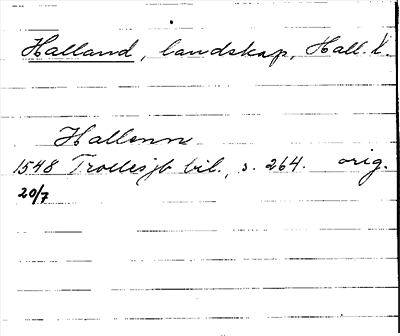 Halland, landskap, Hall. l.
Hallenn
1548 Trollesjb bil., s. 264. orig.
20/7